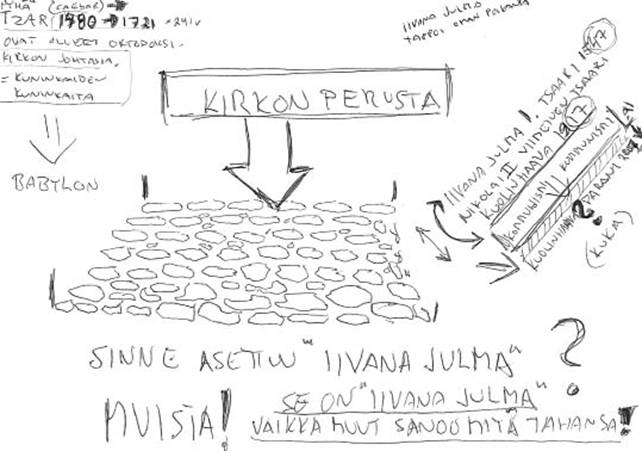 TZAR 1480 → 1721
OVAT OLLEET ORTODOKSI-
KIRKON JOHTAJIA.
= KUNINKAIDEN
KUNINKAITA
BABYLON
KIRKON PERUSTA
IIVANA JULMA
TAPPOI OMAN POIKANSA
IIVANA JULMA 1. TSAARI 1547
NIKOLAI II VIIMEINEN TSAARI
KUOLINHAAVA 1917
KOMMUNISMI KOMMUNISMI
KUOLINHAAVA PARANI
?
(KUKA)
SINNE ASETIN "IIVANA JULMA"
?
MUISTA!
SE ON "IIVANA JULMA"
VAIKKA MUUT SANOO MITÄ TAHANSA!